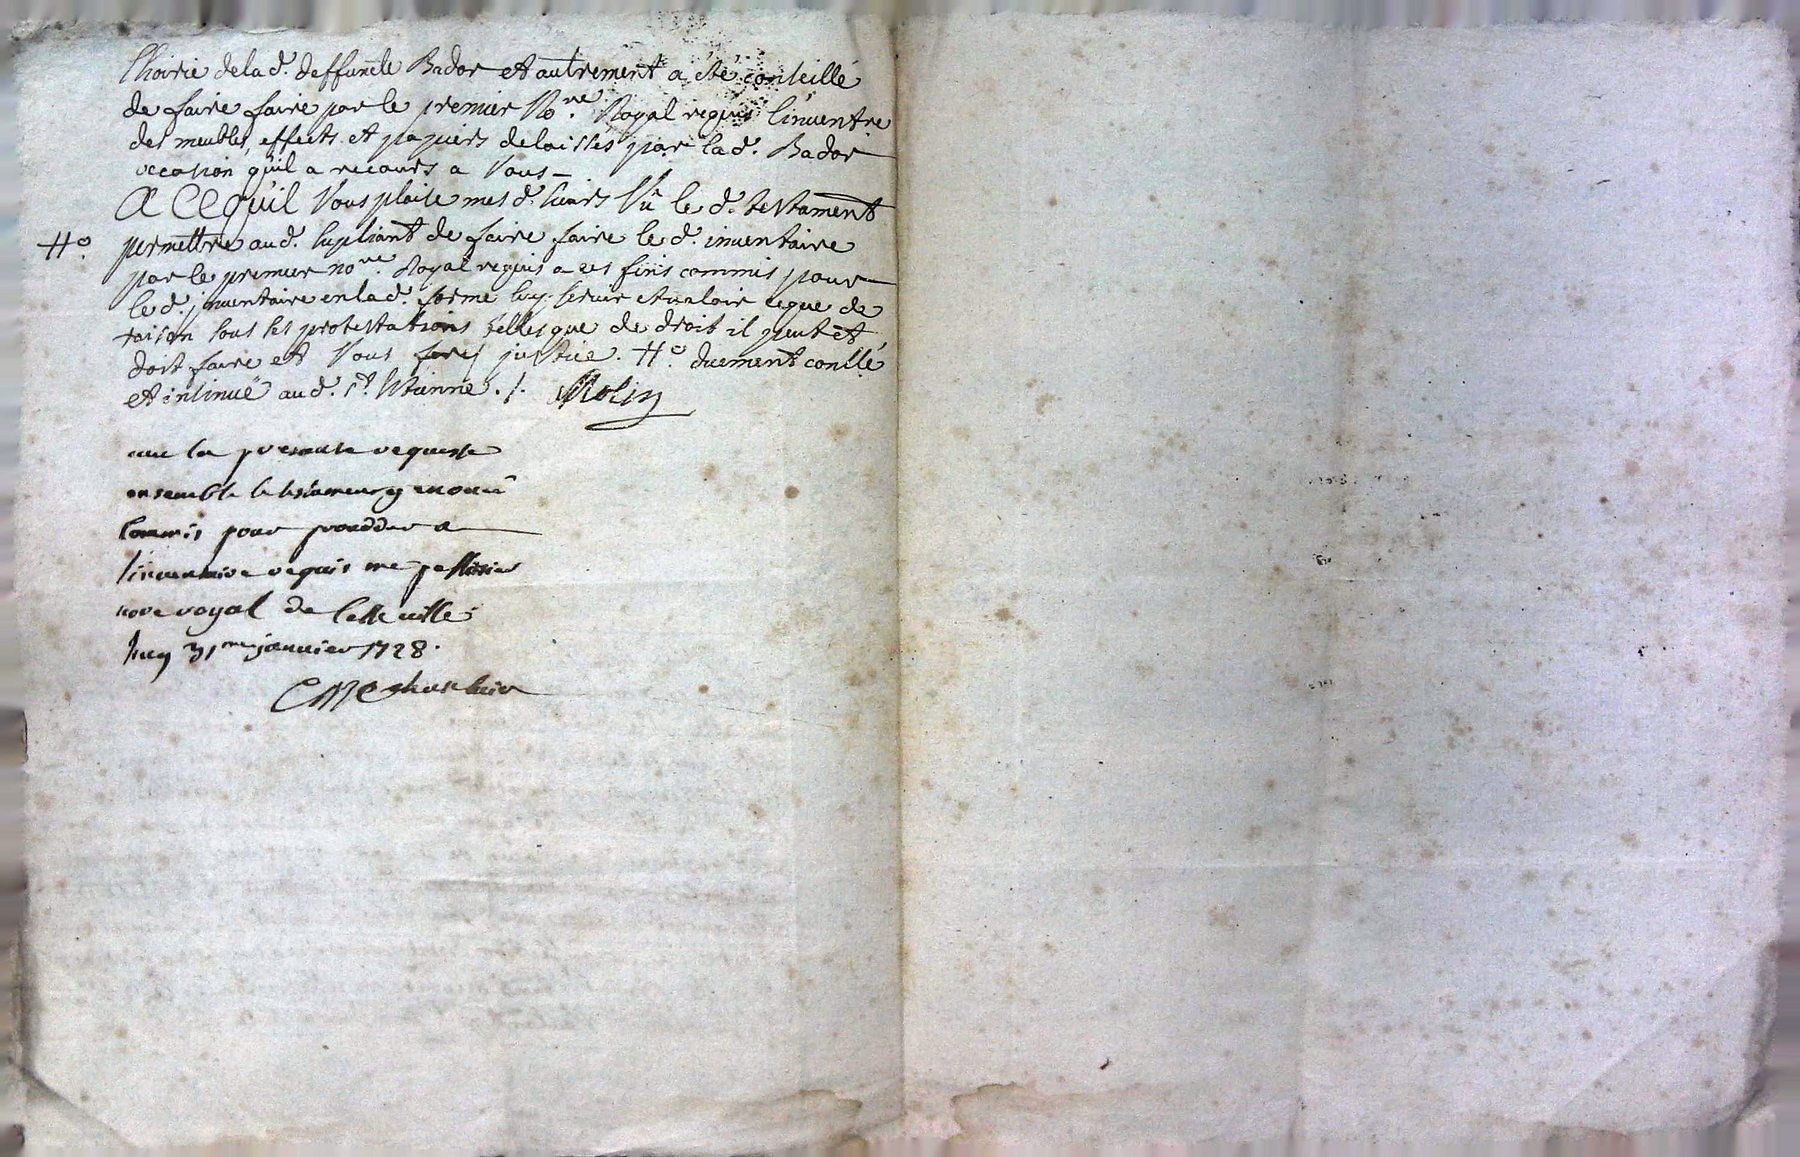 l'hoirie de la d.^e deffuncte Bador et autrement a été conseillé
de faire faire par le premier No.^re Royal requis l'inuent.^re
des meubles, effects et papiers delaissés par la d.^e Bador
occasion qu'il a recours a Vous
A CE qu'il Vous plaise mes d.^s sieurs Vû le d.^t testament
H.^o permettre au d.^t supliant de faire faire le d.^t inuentaire
par le premier no.^re Royal requis a ces fins commis pour
le d.^t inuentaire en la d.^e forme luy seruir et ualoir ce que de
raison sous les protestations telles que de droit il peut et
doit faire et Vous ferez justice. H.^o duement conllé
et intinué au d.^t S.^t Etienne ./. Molin
ueu la presente requeste
ensemble le testament y enoncé
commis pour proceder a
l'inuentaire requis me pellissier
no.re royal de cette uille
31^me januier 1728.